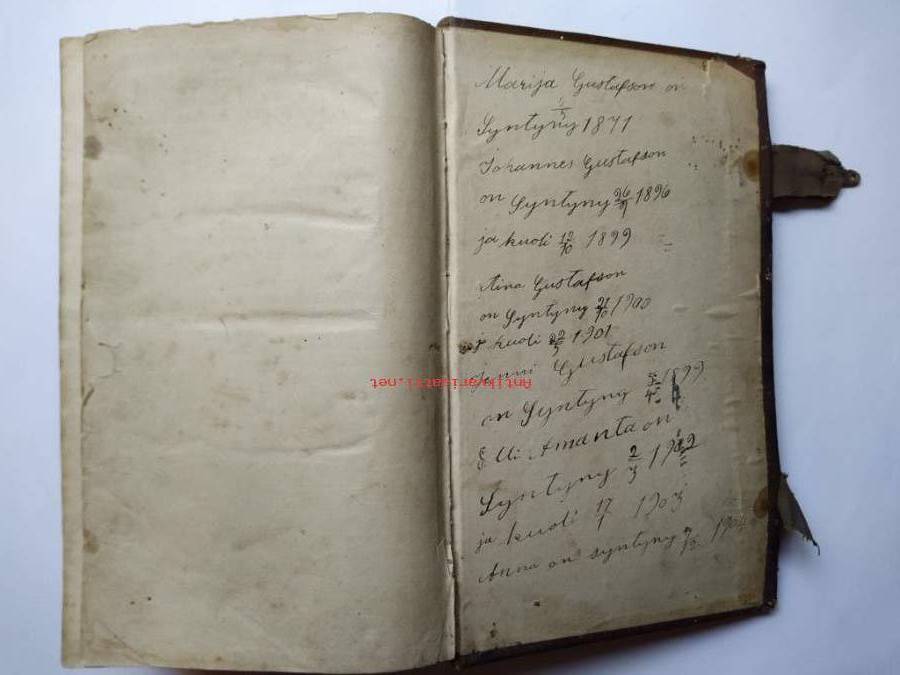 Marija Gustafson on
Syntyny 1/3 1871
Johannes Gustafson
on Syntyny 26/9 1896
ja kuoli 12/10 1899
Aina Gustafson
on Syntyny 21/10 1900
ja kuoli 22/3 1901
Jenni Gustafson
on Syntyny 5/4 1899
Elli Amanta on
Syntyny 2/3 1902
ja kuoli 17/1 1903
Anna on syntyny
Antikvariaatti.net